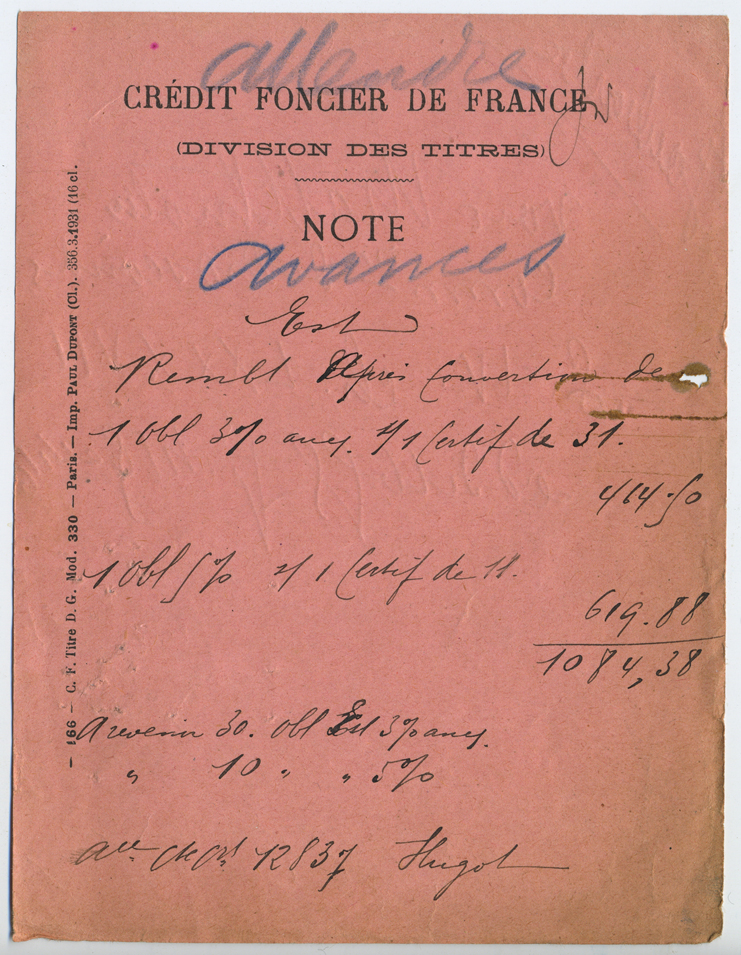 attendre
CRÉDIT FONCIER DE FRANCE
(DIVISION DES TITRES)
NOTE
avances
Est
Rembt après convertion de
1 obl 3% anc. s/1 Certif de 31.
464.50
1 obl 5% s/1 Certif de 11.
619.88
1084,38
A revenir 30. obl Est 3% anc.
" 10 " " 5%
12837 Hugot
— 166 — C. F. Titre D. G. Mod. 330 — Paris. — Imp. PAUL DUPONT (Cl.). 356.3.1931 (16 cl.